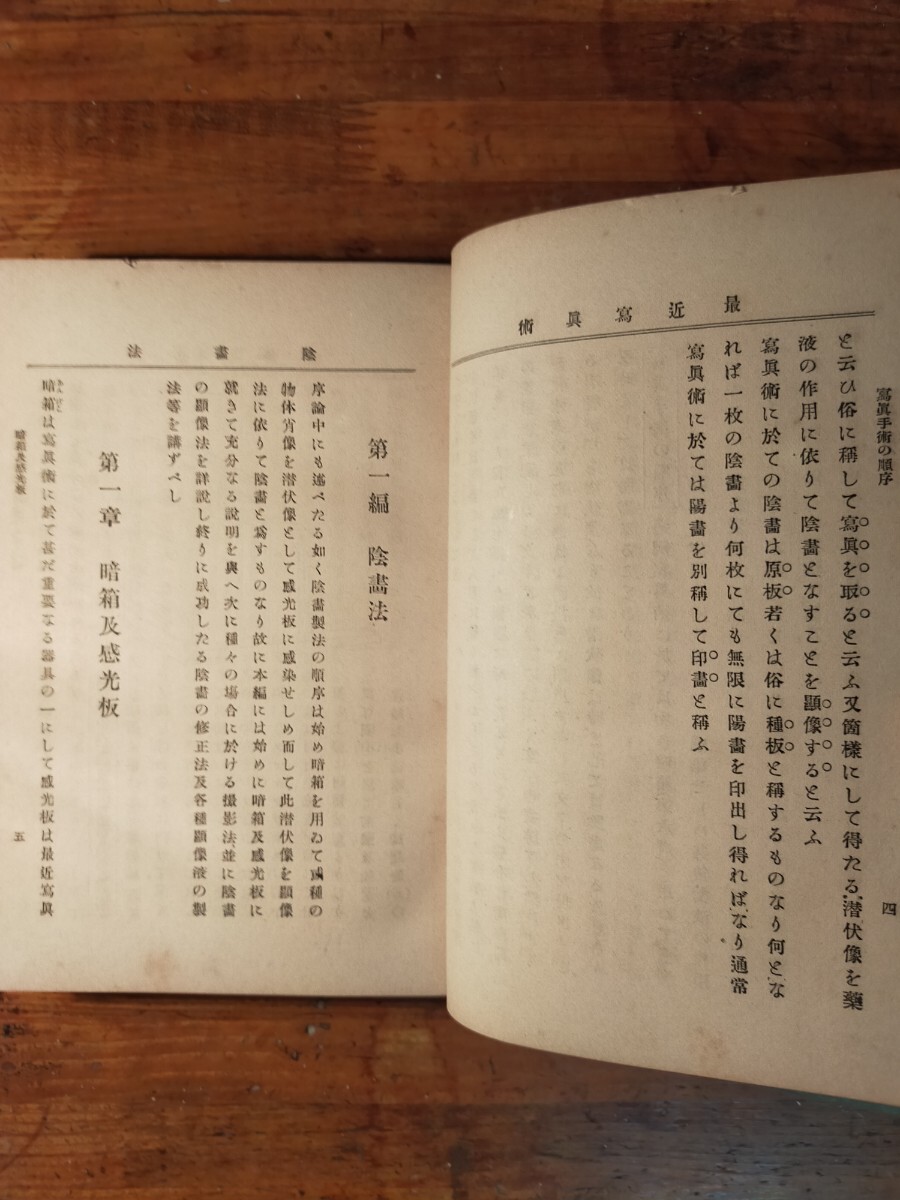 最近寫眞術
寫眞手術の順序
四
と云ひ俗に稱して寫眞を取ると云ふ又箇樣にして得たる潜伏像を藥
液の作用に依りて陰畫となすことを顯像すると云ふ
寫眞術に於ての陰畫は原板若くは俗に種板と稱するものなり何とな
れば一枚の陰畫より何枚にても無限に陽畫を印出し得ればなり通常
寫眞術に於ては陽畫を別稱して印畫と稱ふ
陰畫法
第一編　陰畫法
序論中にも述べたる如く陰畫製法の順序は始め暗箱を用ゐて種の
物休肖像を潜伏像として感光板に感染せしめ而して此潜伏像を顯像
法に依りて陰畫と爲すものなり故に本編には始めに暗箱及感光板に
就きて充分なる說明を與へ次に種々の場合に於ける撮影法、並に陰畫
の顯像法を詳說し終りに成功したる陰畫の修正法及各種顯像液の製
法等を講ずべし
第一章　暗箱及感光板
暗箱は寫眞術に於て甚だ重要なる器具の一にして感光板は最近寫眞
暗箱及感光板
五